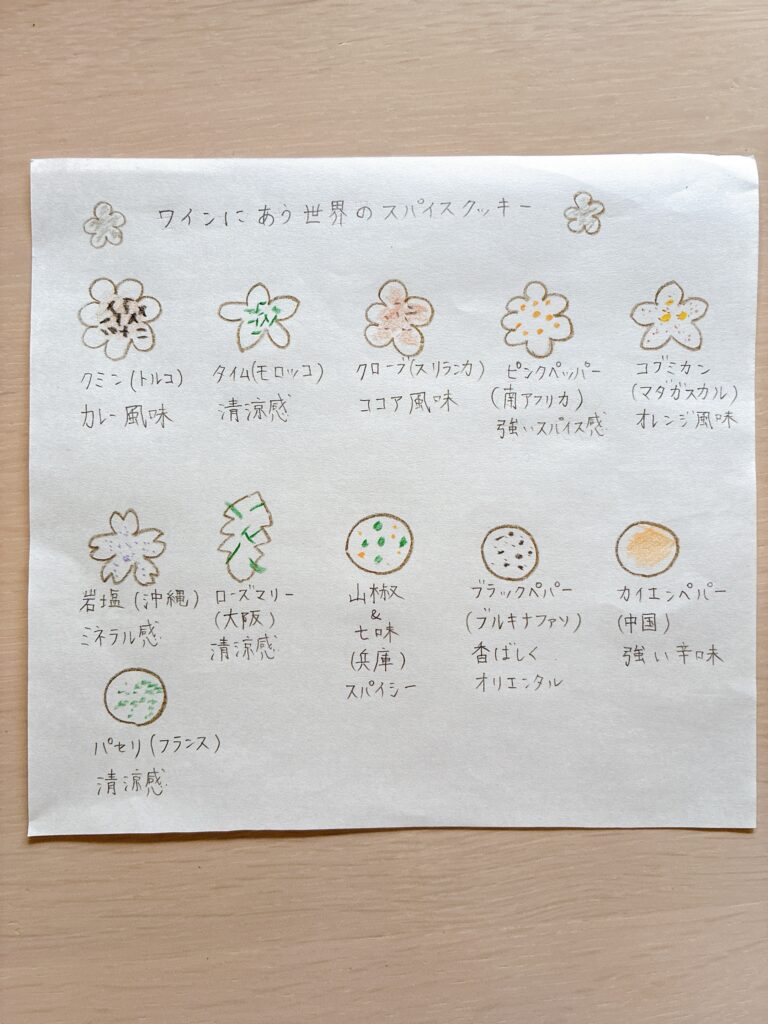 ワインにあう世界のスパイスクッキー
クミン(トルコ)
カレー風味
タイム(モロッコ)
清涼感
クローブ(スリランカ)
ココア風味
ピンクペッパー
(南アフリカ)
強いスパイス感
コブミカン
(マダガスカル)
オレンジ風味
岩塩(沖縄)
ミネラル感
ローズマリー
(大阪)
清涼感
山椒
&
七味
(兵庫)
スパイシー
ブラックペパー
(ブルキナファソ)
香ばしく
オリエンタル
カイエンペパー
(中国)
強い辛口味
パセリ(フランス)
清涼感